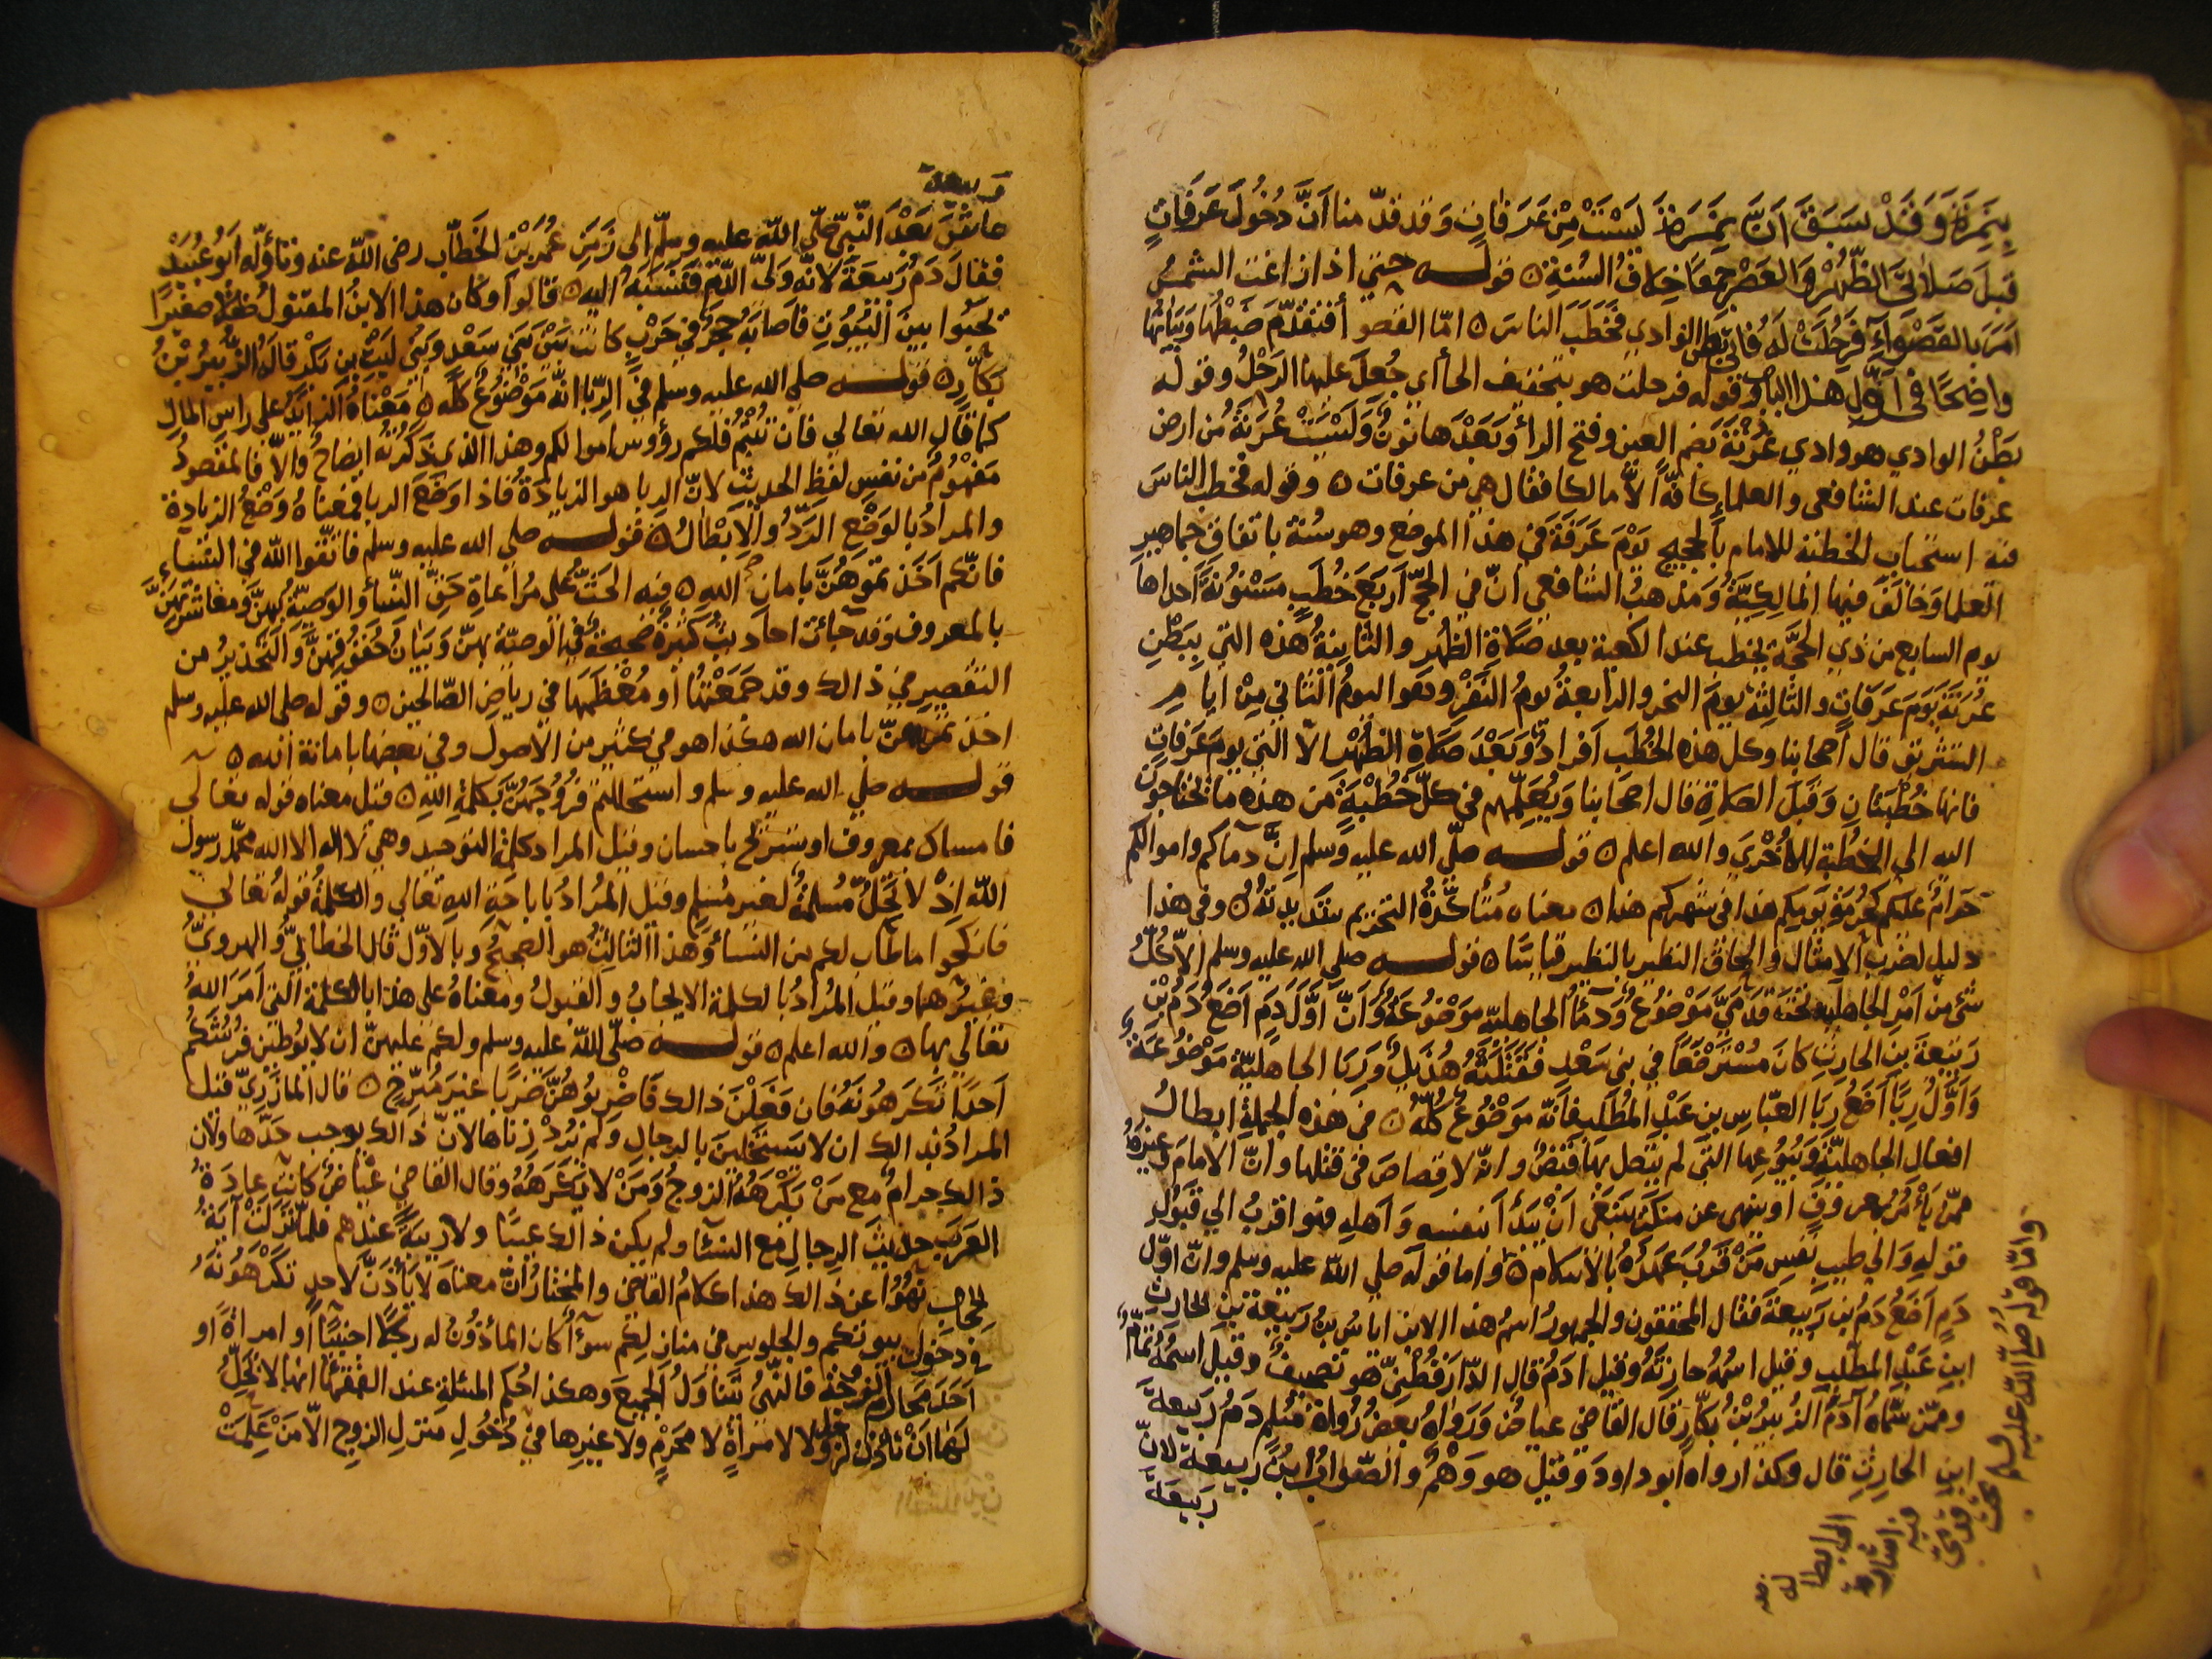 بِنَمِرَةَ وَقَدْ سَبَقَ اَنَّ نَمِرَةَ لَيْسَتْ مِنْ عَرَفاتٍ وَقد قدّمنا اَنَّ دُخُولَ عَرَفاتٍ
قبلَ صَلاتَىِ الظُّهْرِ وَالعَصْرِ جَمِعًا خِلافُ السُنةِ ٥ قولـــه حتي اذا زاغت الشمسُ
اَمَرَ بالقَصْوَآءِ فَرُحِلَتْ لَهُ فاتى بَطن الوادي فَخَطَبَ الناسَ ٥ امّا القصوآ فتقدّم ضَبطُها وَبَيَانُها
واضِحًا في اوّلِ هذا الباب وقوله فرحلت هو بتخفيف الحاأي جُعِلَ عليها الرَحْلُ وقوله
بَطْنُ الوادي هو وادي عُرَنَةَ بضم العين وفتح الرا وَبَعْدَها نونٌ وَلَيْسَتْ عُرَنَةُ مِن ارض
عرفات عند الشافعي والعلماءِ كافةً الاّ مالكا فقال هي من عرفات ٥ وقوله فخطب الناسَ
فيه استحباب الخطبة للامام بالحجيج يَوْمَ عَرَفَةَ في هذا الموضع وهو سُنة باتفاق جماهيرِ
العلما وَخَالَفَ فيها المالِكِيَّةُ وَمذهبُ الشافعي انّ في الحجّ اَربعَ خُطَبٍ مَسْنُونَةٍ اَحداها
يوم السابع من ذي الحَجَّة يخطب عند الكعبة بعد صَلاةِ الظُهرِ والثانِيَةُ هذه التي بِبَطْنِ
عُرَنَةَ يَوَمَ عَرَفاتٍ والثالِثةُ يومَ النحر والرابعةُ يومُ النَّفْرِ وهو اليومُ الثاني مِنْ ايامِ
التشريق قال اَصحابنا وكل هذه الخُطَبِ اَفرادٌ وَبَعْدَ صَلاةِ الظُهْرِ الاّ التي يومَ عَرَفاتٍ
فانها خُطْبَتانِ وَقَبلَ الصَلاةِ قال اصحَابنا وَيُعَلِّمُهم في كلِّ خُطْبةٍ مِن هذه ما يحتاجون
اليه الى الخطبةِ الاُخْرَي والله اعلم ٥ قولـــه صلّى الله عليه وَسلم اِنَّ دمآكم واموالكم
حَرامٌ عليكم كحُرمَةِ يَومِكم هذا في شَهركم هذا ٥ معناه مُتأكِّدَةُ التحريم شَدِيدَتُهُ ٥ وفي هذا
دليل لضرب الامثال والحاق النظير بالنظير قياسًا ٥ قولـــه صلى الله عليه وسلم الاّ كُلُّ
شئ من اَمْرِ الجاهليه تحتَ قدمَيَّ مَوْضوعٌ وَدمآءُ الجاهليّة مَوْضُوعَةٌ وَاَنّ اوَّلَ دَمٍ اَضَعُ دَمُ بْنِ
رَبِيعَةَ بنِ الحارِثِ كانَ مُسْتَرْضَعًا في بني سَعْدٍ فَقَتَلَتْهُ هُذَيلٌ وَرِبَا الجاهليّة مَوْضوُعَةٌ
وَاَوّلُ رِبًا اَضَعُ رِبَا العبّاسِ بن عَبْدِ المُطَّلِب فانّه مَوْضُوعٌ كُلّهُ ٥ في هذه الجملةِ ابطالُ
افعال الجاهليّةِ وَبُيُوعِها التي لم يتّصل بها قَبْضٌ وانّه لا قِصاصَ في قتلها وانّ الامامَ وغيرهُ
ممّن يَأمُرُ بمعروفٍ او ينهى عن منكر ينبَغي اَنْ يَبدأ بنفسه وَاَهلِهِ فهو اقربُ الي قَبُولِ
قولهِ وَالي طيبِ نَفسِ مَنْ قَرُبَ عَهْدُهُ بالاسلام ٥ وَاما قوله صلي اللهّ عليه وسلم وانّ اوّل
دَمٍ اَضَعُ دَمُ بن رَبِيعةَ فقال المحققون والجمهورُ اسمُ هذا الابن اياسُ بنُ رَبيعةَ بنِ الحارثِ
ابن عَبْدِ المطّلب وقيل اسْمُهُ حارثَةُ وقيل اٰدمُ قال الدّارَقُطْنِيّ هو تصحيفٌ وقيل اسمُهُ تمّامٌ
وممّن سَمّاهُ آدَمَ الزُبيرُ بْنُ بكّارٍ قال القاضي عياض وَرَواهُ بعضُ رُواةِ مُسلِمٍ دَمُ رَبيعةَ
ابن الحارِثِ قال وكذا رواه ابو داودَ وَقيلَ هو وَهْمٌ والصّوابُ ابنُ ربيعةَ لانّ
رَبِيعَةَ
وامّا قوله صلى اللّٰه عليه وسلم تحت
قدمىّ
فيه اشارة
الى ابطاله
ربيعة
عاشَ بَعْدَ النّبيِّ صلّى اللّه عليه وسلّم الى زَمَنِ عُمَرَ بْنِ الخَطّابِ رضى الله عنه وتأوّله ابَو عُبَيْدٍ
فقالَ دَمُ رَبيعَةَ لانّه وَلىُّ الدّمِ فَنَسَبَهُ اليه ٥ قالوا وكان هذا الابنُ المقتول طفلا صغيرًا
يحبُوا بينَ البُيُوتِ فاَصابَهُ حجَرٌ في حَرْبٍ كانت بَيْنَ بَني سَعْدٍ وَبَني لَيْثِ بن بَكْرٍ قالَهُ الزُبيرُ بْنُ
بكّارٍ ٥ قولـــه صلي الله عليه وسلم في الرّبا انّه مَوْضُوعٌ كلُّه ٥ مَعْناهُ الزايدُ على راس المال
كما قال الله تعالي فان تُبْتُمْ فلكم رؤوس اموالكم وهذا الذي ذكَرْتُهُ ايضاحٌ والاّ فالمقصودُ
مَفْهُومٌ من نفسِ لفظِ الحديثِ لانّ الربا هو الزيادَةُ فاذا وَضَعَ الربا فمعناهُ وَضْعُ الزيادة
والمرادُ بالوَضْعِ الرَدُّ والابْطالُ ٥ قولـــه صلي الله عليه وسلم فاتّقوا اللّه في النساء
فانّكم اَخَذتموُهُنّ بامان اللهِ ٥ فيه الحثّ على مُراعاةِ حَقِّ النّساءِ والوَصيّةِ بهنّ ومعاشرتهنّ
بالمعروف وقد جآئت احاديثُ كثيرَةٌ صَحيحَةٌ في الوصيّة بهنّ وَبَيان حُقوُقهنّ وَالتحذيرُ من
التقصيرِ في ذالك وقد جَمَعْتُها أو مُعْظَمَها في رياضِ الصّالحين ٥ وقوله صلى الله عليه وسلم
اخذتموهنّ بامان الله هكذا هو في كثيرٍ من الاصول وفي بعضها بامانة الله ٥
قولـــه صلي الله عليه وسلم واستحللتم فُرُوجَهُنّ بكلمةِ اللهِ ٥ قيل معناه قوله تعالي
فامساك بمعروف او تسريح باحسان وقيل المراد كلمة التوحيد وهي لا اله الا الله محمّد رسول
اللّه اِذْ لا تحَلُّ مُسلمةٌ لغيرِ مُسْلمٍ وقيل المرُادُ باباحَةِ الله تعالي والكلمةُ قولهُ تعالي
فانكحوا ما طابَ لكم من النساءِ وهذا الثالثُ هو الصحيح وبالاوّل قال الخطابيُّ والهرويُّ
وغيرُهما وقيل المُرادُ بالكلمة الايجابُ والقبولُ ومعناهُ على هذا بالكلمة التي اَمَرَ اللهُ
تعالي بها ٥ والله اعلم ٥ قولـــه صلّى اللهّ عليه وسلم ولكم عليهنّ ان لا يُوطئن فُرُشَكُم
اَحَدًا تَكرَهُونَهُ فان فَعَلْنَ ذالك فاضْرِبُوُهُنّ ضَرْبا غيرَ مُبَرّحٍ ٥ قال المازريّ قيل
المرادُ بذالك ان لا يَسْتخلينَ بالرجال وَلم يُردْ زِناها لانّ ذالك يوجب حَدّها ولان
ذالك حرامٌ مع مَنْ يَكْرَهُهُ الزوجُ وَمَن لا يَكرَهُهُ وقال القاضي عياضٌ كانت عادَةُ
العَرَبِ حديثَ الرجالِ مع النسآءِ ولم يكن ذالك عيبًا ولا ريبةً عندهم فلمّا نزلَتْ آيَةُ
الحجاب نُهُوا عن ذالك هذا كلامُ القاضي والمختارُ انّ معناهَ لا يَأْذَنّ لاَحدٍ تكرَهُونَهُ
في دخول بيوتكم والجلوس في منازلكم سوآءٌ كان المأذونُ له رجُلاً اجنبيًّا أو امراةً او
اَحَدَ مَحارِمِ الزوجة فالنّهيُ يَتناوَلُ الجميعَ وهكذا حُكم المسئلة عند الفقهآءِ انها لا تحلُّ
لَها انْ تأذَنَ لِرجلٍ ولا لامرأةٍ لا محَرَمٍ ولا غيرِها في دُخُولِ منزلِ الزوج الاّ مَنْ عَلِمَتْ